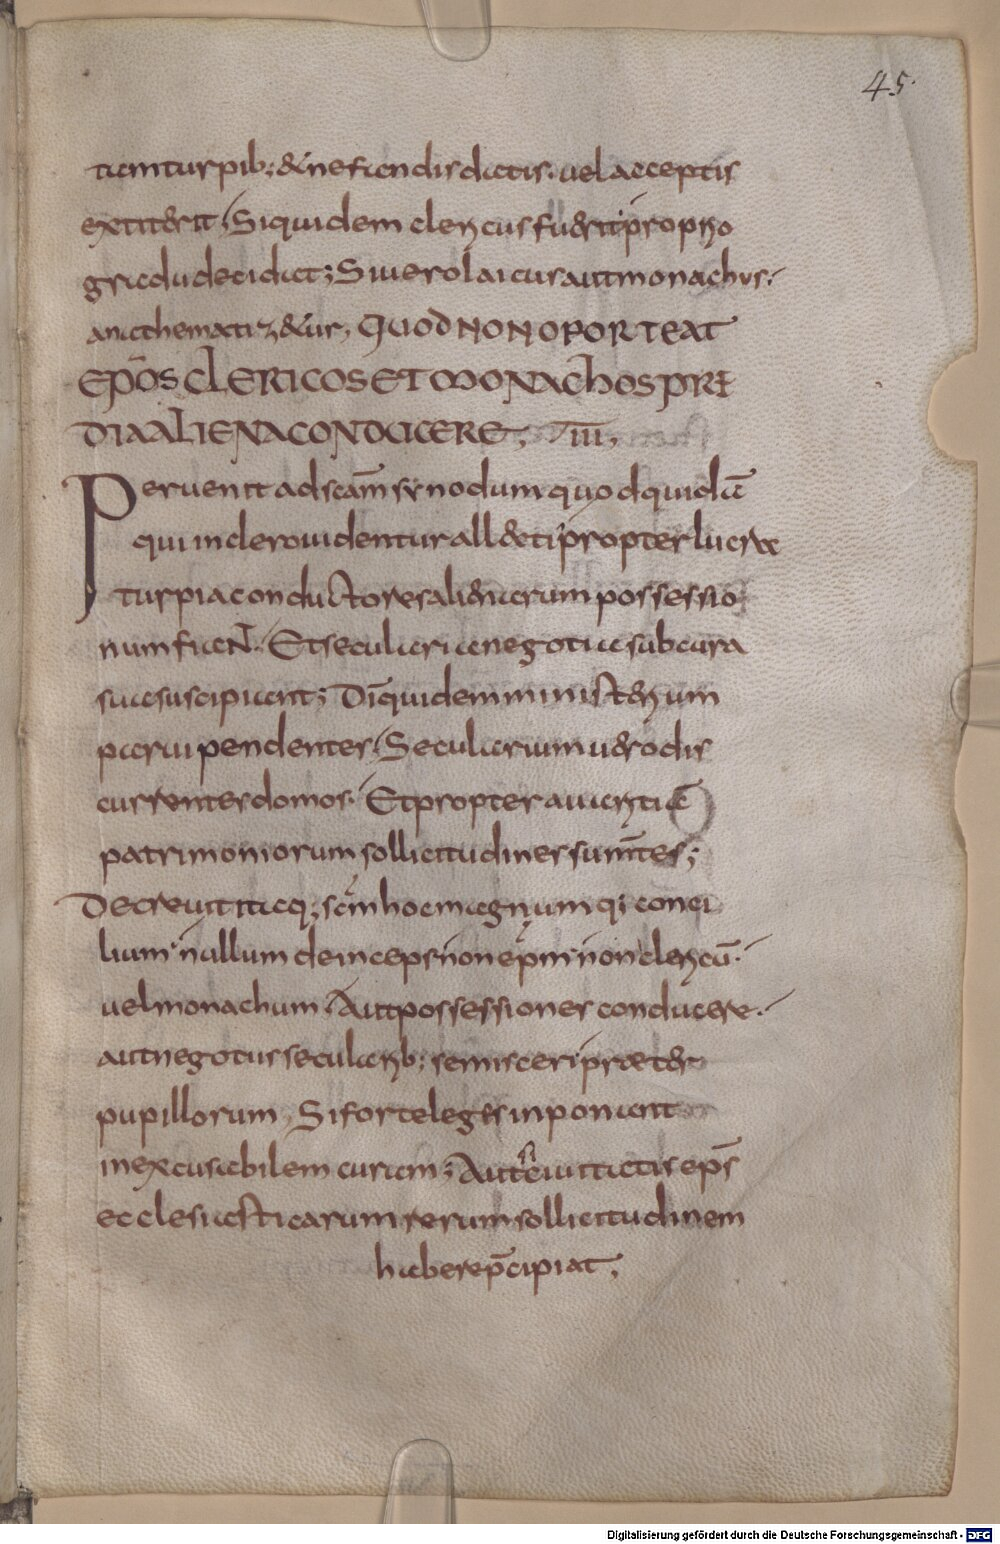 45.
tam turpib; & nefandis datis. vel acceptis
extiterit, Siquidem clericus fuerit proprio
gradu decidat; Si vero laicus aut monachus.
anathematiz&ur, QUOD NON OPORTEAT
EPōS CLERICOS ET MONACHOS PRE
DIA ALIENA CONDUCERE, Tī. III,
Pervenit ad scām synodum quod quidā
qui in clero videntur all&ti propter lucra
turpia conductores alienarum possessio
num fiaNT. Et secularia negotia sub cura
sua suscipiant; Dī quidem ministerium
parvi pendentes, Secularium vero dis
currentes domos. Et propter avaritiā
patrimoniorum sollicitudines sum̄tes;
Decrevit itaq; scm̄ hoc magnum q; conci
lium nullum deinceps non epm̄ non clericū.
vel monachum, Aut possessiones conducere.
aut negotiis secularib; se misceri præter
pupillorum, Si forte leges inponant
inexcusabilem curam; Aut civitatis eps̄
ecclesiasticarum rerum sollicitudinem
habere p̄cipiat,
Digitalisierung gefördert durch die Deutsche Forschungsgemeinschaft - DFG